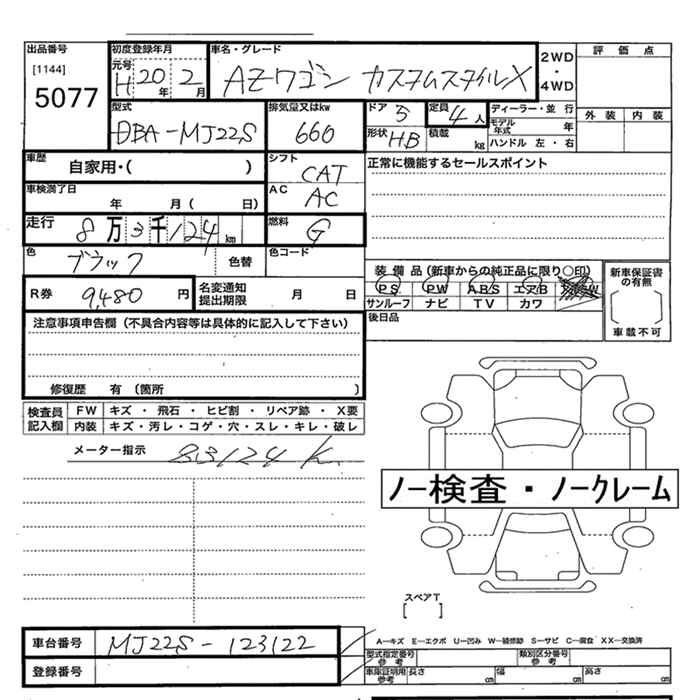 出品番号
[1144]
5077
初度登録年月
元号 H 20 年 2 月
車名・グレード
AZワゴン カスタムスタイルX
2WD
・
4WD
評価点
外装 内装
型式
DBA-MJ22S
排気量又はkw
660
ドア 5
定員 4 人
形状 HB
積載 kg
ディーラー・並行
モデル年式 年
ハンドル 左・右
車歴
自家用・( )
シフト
CAT
正常に機能するセールスポイント
車検満了日
年 月( 日)
AC
AC
走行 8 万 3 千 124 km
燃料
G
色
ブラック
色替
色コード
R券 9,480 円
名変通知
提出期限 月 日
装備品(新車からの純正品に限り○印)
PS PW ABS エアB
サンルーフ ナビ TV カワ
新車保証書
の有無
[ ]
車載不可
後日品
注意事項申告欄(不具合内容等は具体的に記入して下さい)
修復歴 有 (箇所 )
検査員
記入欄
FW キズ ・ 飛石 ・ ヒビ割 ・ リペア跡 ・ X要
内装 キズ・汚レ・コゲ・穴・スレ・キレ・破レ
メーター指示 83124 K
ノー検査・ノークレーム
スペアT
[ ]
車台番号 MJ22S-123122
登録番号
A…キズ E…エクボ U…凹み W…補修跡 S…サビ C…腐食 XX…交換済
型式指定番号
参考
類別区分番号
参考
車庫証明用
参考
長さ cm 幅 cm 高さ cm